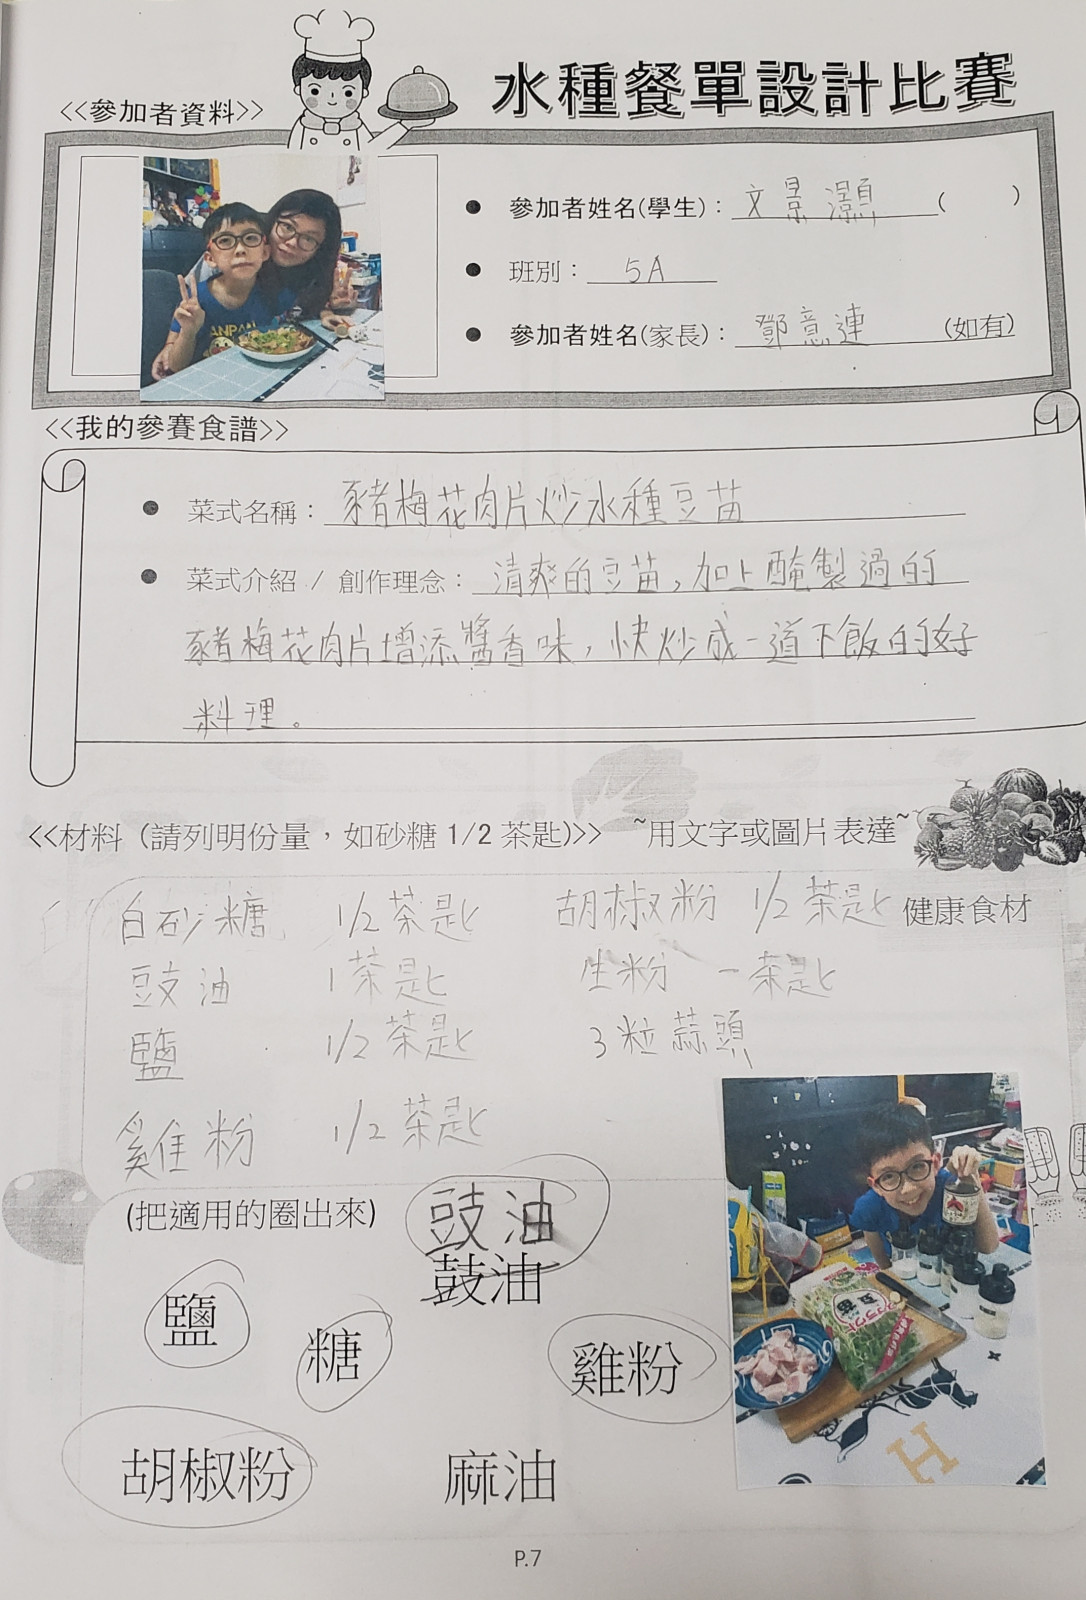 水種餐單設計比賽
<<參加者資料>>
參加者姓名(學生)：文景灝(　　)
班別：5A
參加者姓名(家長)：鄧意連(如有)
<<我的參賽食譜>>
菜式名稱：豬梅花肉片炒水種豆苗
菜式介紹 / 創作理念：清爽的豆苗,加上醃製過的
豬梅花肉片增添醬香味，快炒成一道下飯的好
料理。
<<材料 (請列明份量，如砂糖 1/2 茶匙)>> ~用文字或圖片表達~
白砂糖 1/2茶匙 胡椒粉 1/2茶匙 健康食材
豉油 1茶匙 生粉 一茶匙
鹽 1/2茶匙 3粒蒜頭
雞粉 1/2茶匙
(把適用的圈出來) 豉油
鼓油
鹽
糖 雞粉
胡椒粉 麻油
H
P.7